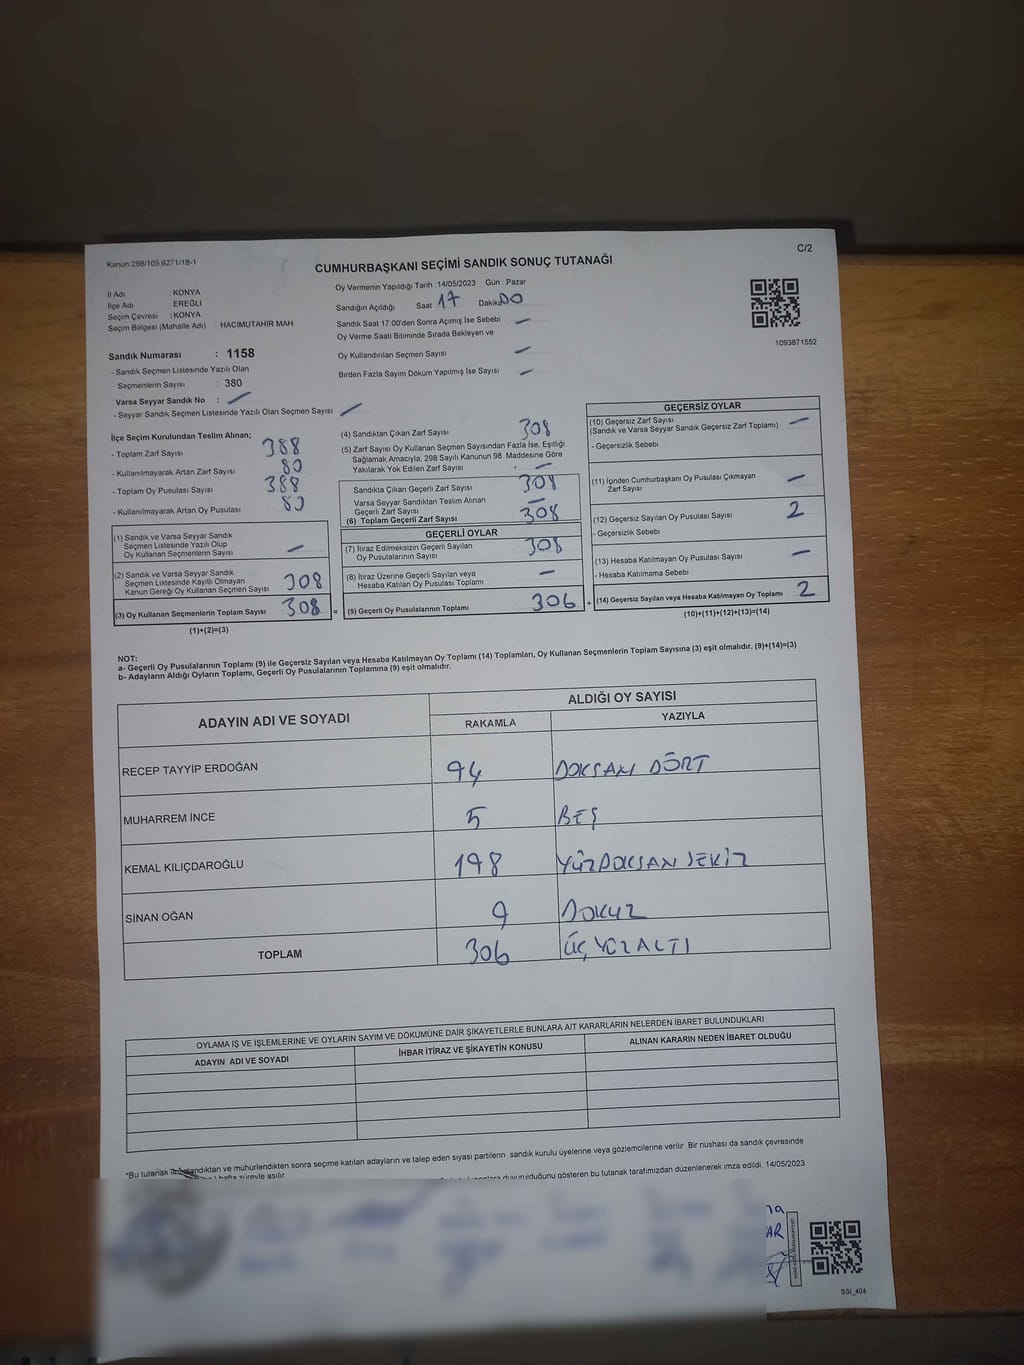 Kanun:298/105,6271/18-1
C/2
CUMHURBAŞKANI SEÇİMİ SANDIK SONUÇ TUTANAĞI
İl Adı KONYA
İlçe Adı EREĞLİ
Seçim Çevresi : KONYA
Seçim Bölgesi (Mahalle Adı) HACIMUTAHİR MAH
Sandık Numarası : 1158
- Sandık Seçmen Listesinde Yazılı Olan
Seçmenlerin Sayısı : 380
Varsa Seyyar Sandık No : —
- Seyyar Sandık Seçmen Listesinde Yazılı Olan Seçmen Sayısı —
Oy Vermenin Yapıldığı Tarih 14/05/2023 Gün : Pazar
Sandığın Açıldığı Saat 17 Dakika 00
Sandık Saat 17.00'den Sonra Açımış İse Sebebi —
Oy Verme Saati Bitiminde Sırada Bekleyen ve
Oy Kullandırılan Seçmen Sayısı —
Birden Fazla Sayım Döküm Yapılmış İse Sayısı —
1093871552
İlçe Seçim Kurulundan Teslim Alınan;
- Toplam Zarf Sayısı 388
- Kullanılmayarak Artan Zarf Sayısı 80
- Toplam Oy Pusulası Sayısı 388
- Kullanılmayarak Artan Oy Pusulası 80
(1) Sandık ve Varsa Seyyar Sandık
Seçmen Listesinde Yazılı Olup
Oy Kullanan Seçmenlerin Sayısı —
(2) Sandık ve Varsa Seyyar Sandık
Seçmen Listesinde Kayıtlı Olmayan
Kanun Gereği Oy Kullanan Seçmen Sayısı 308
(3) Oy Kullanan Seçmenlerin Toplam Sayısı 308 =
(1)+(2)=(3)
(4) Sandıktan Çıkan Zarf Sayısı 308
(5) Zarf Sayısı Oy Kullanan Seçmen Sayısından Fazla İse, Eşitliği
Sağlamak Amacıyla, 298 Sayılı Kanunun 98. Maddesine Göre
Yakılarak Yok Edilen Zarf Sayısı —
Sandıkta Çıkan Geçerli Zarf Sayısı 308
Varsa Seyyar Sandıktan Teslim Alınan
Geçerli Zarf Sayısı —
(6) Toplam Geçerli Zarf Sayısı 308
GEÇERLİ OYLAR
(7) İtiraz Edilmeksizin Geçerli Sayılan
Oy Pusulalarının Sayısı 308
(8) İtiraz Üzerine Geçerli Sayılan veya
Hesaba Katılan Oy Pusulası Toplamı —
(9) Geçerli Oy Pusulalarının Toplamı 306 +
GEÇERSİZ OYLAR
(10) Geçersiz Zarf Sayısı
(Sandık ve Varsa Seyyar Sandık Geçersiz Zarf Toplamı) —
- Geçersizlik Sebebi
(11) İçinden Cumhurbaşkanı Oy Pusulası Çıkmayan
Zarf Sayısı —
(12) Geçersiz Sayılan Oy Pusulası Sayısı 2
- Geçersizlik Sebebi
(13) Hesaba Katılmayan Oy Pusulası Sayısı —
- Hesaba Katılmama Sebebi
(14) Geçersiz Sayılan veya Hesaba Katılmayan Oy Toplamı 2
(10)+(11)+(12)+(13)=(14)
NOT:
a- Geçerli Oy Pusulalarının Toplamı (9) ile Geçersiz Sayılan veya Hesaba Katılmayan Oy Toplamı (14) Toplamları, Oy Kullanan Seçmenlerin Toplam Sayısına (3) eşit olmalıdır. (9)+(14)=(3)
b- Adayların Aldığı Oyların Toplamı, Geçerli Oy Pusulalarının Toplamına (9) eşit olmalıdır.
ADAYIN ADI VE SOYADI ALDIĞI OY SAYISI
RAKAMLA YAZIYLA
RECEP TAYYİP ERDOĞAN 94 DOKSAN DÖRT
MUHARREM İNCE 5 BEŞ
KEMAL KILIÇDAROĞLU 198 YÜZDOKSAN SEKİZ
SİNAN OĞAN 9 DOKUZ
TOPLAM 306 ÜÇ YÜZ ALTI
OYLAMA İŞ VE İŞLEMLERİNE VE OYLARIN SAYIM VE DÖKÜMÜNE DAİR ŞİKAYETLERLE BUNLARA AİT KARARLARIN NELERDEN İBARET BULUNDUKLARI
ADAYIN ADI VE SOYADI İHBAR İTİRAZ VE ŞİKAYETİN KONUSU ALINAN KARARIN NEDEN İBARET OLDUĞU
*Bu tutanak ve mühürlendikten sonra seçime katılan adayların ve talep eden siyasi partilerin sandık kurulu üyelerine veya gözlemcilerine verilir Bir nushası da sandık çevresinde
hafta süreyle asılır
duyurulduğunu gösteren bu tutanak tarafımızdan düzenlenerek imza edildi. 14/05/2023
SSI_404